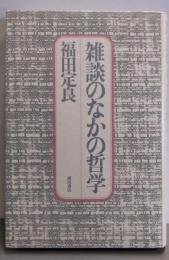 雑談のなかの哲学
福田定良